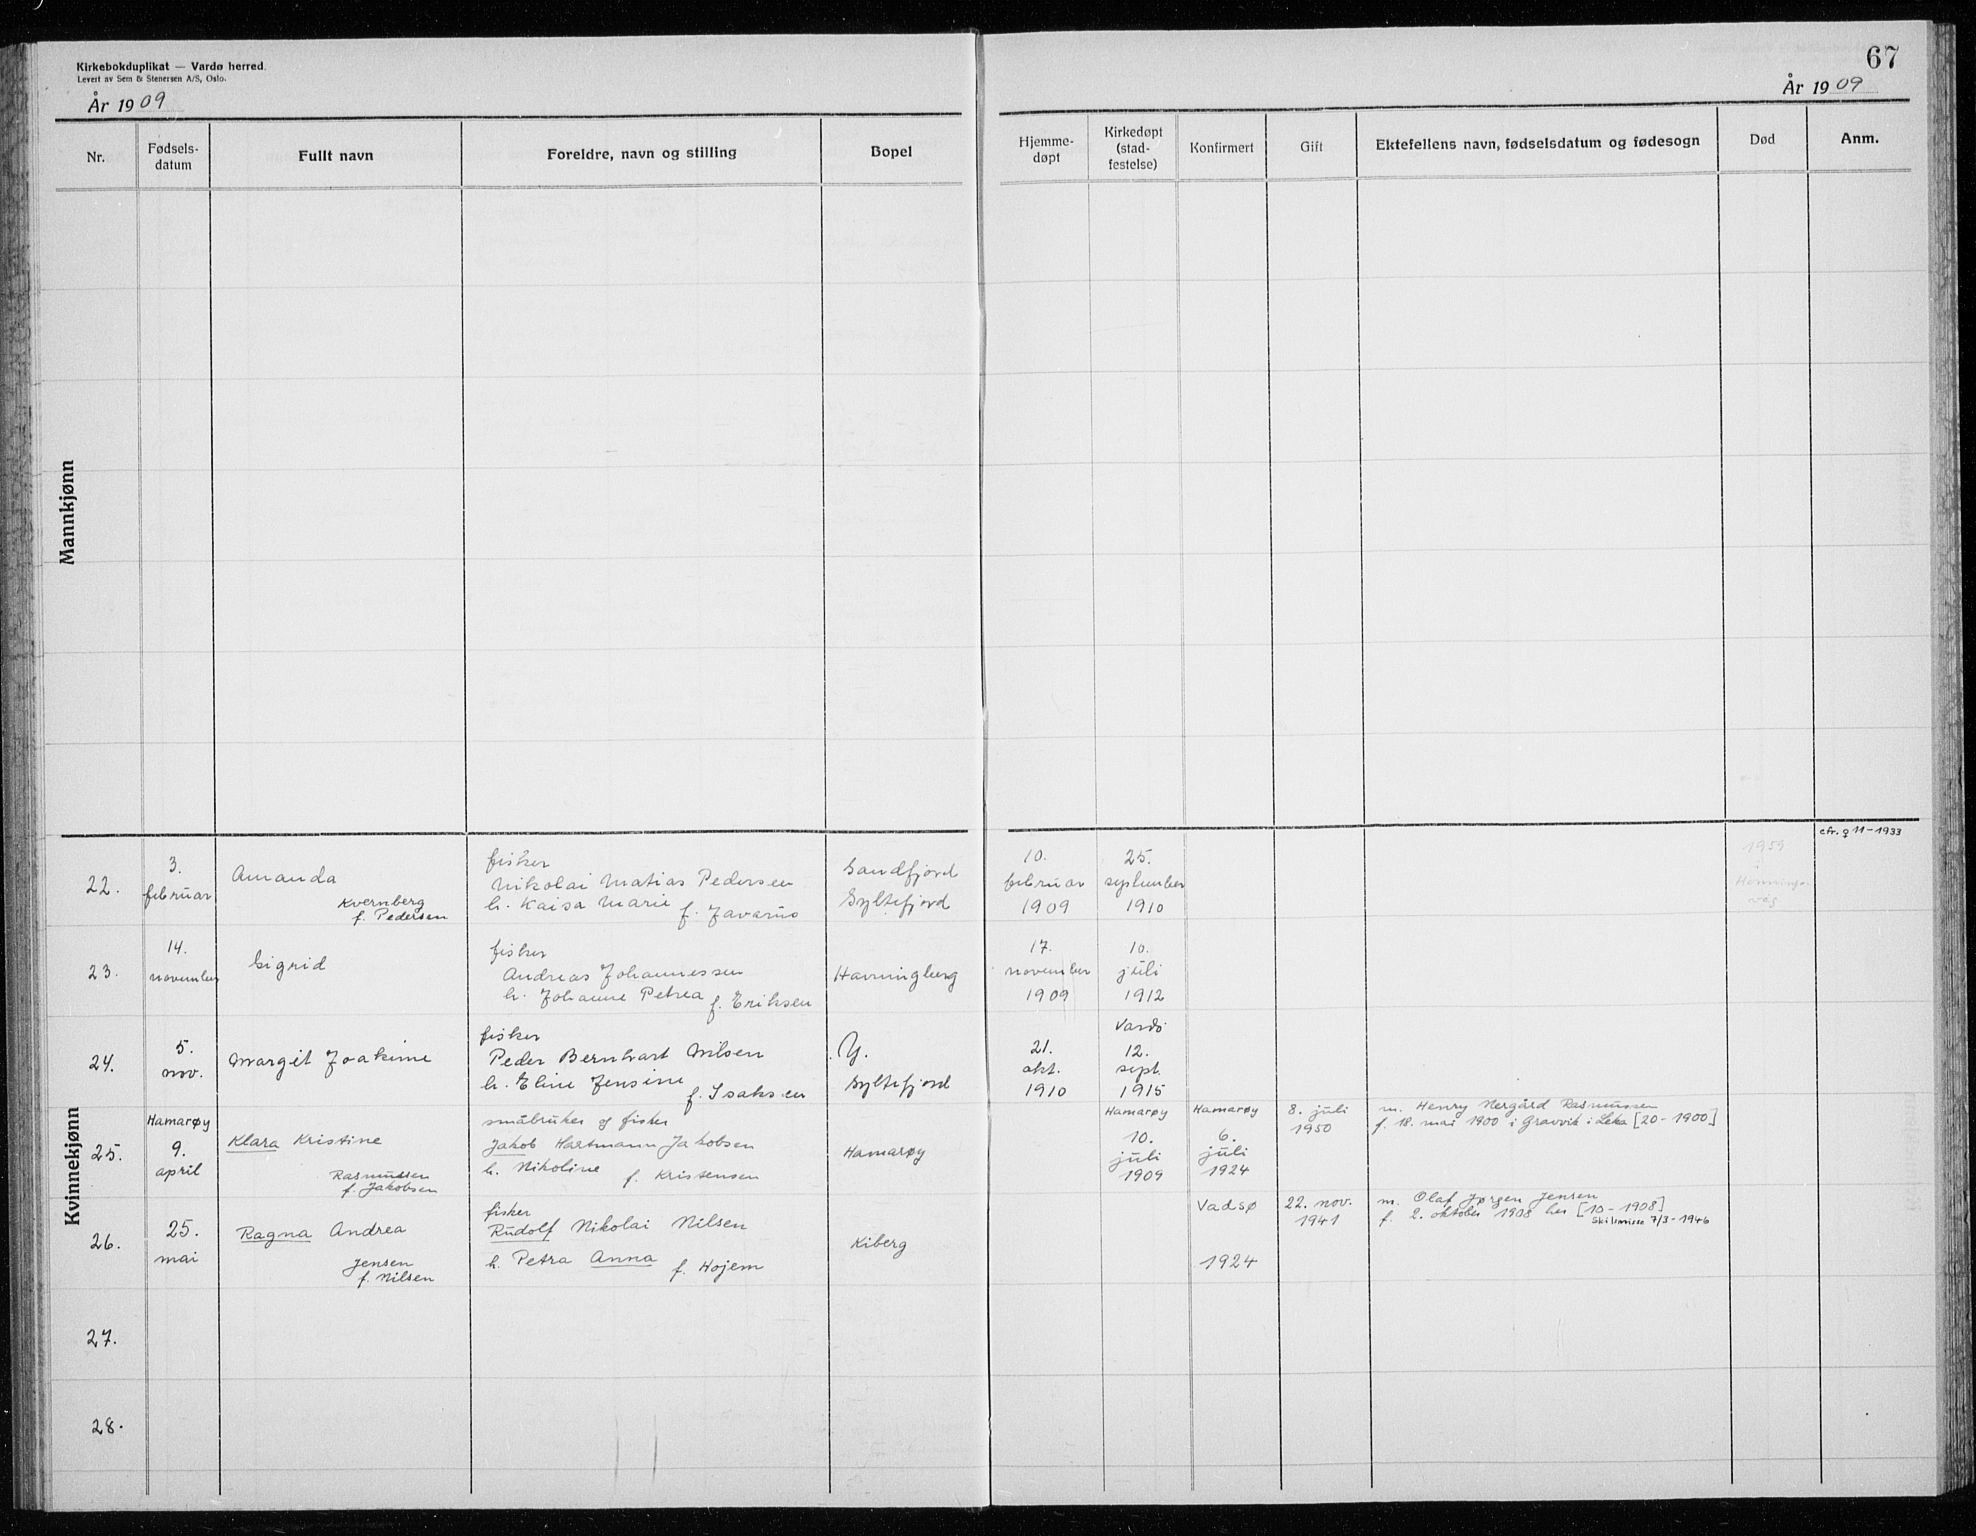 Kirkebokduplikat — Vardø herred.
Levert av Sem & Stenersen A/S, Oslo.
År 1909
67
År 1909
Nr.
Fødsels-
datum
Fullt navn
Foreldre, navn og stilling
Bopel
Hjemme-
døpt
Kirkedøpt
(stad-
festelse)
Konfirmert
Gift
Ektefellens navn, fødselsdatum og fødesogn
Død
Anm.
Mannkjønn
Kvinnekjønn
22.
3.
februar
Amanda
Kvernberg
f. Pedersen
fisker
Nikolai Matias Pedersen
h. Kaisa Marie f. Javarus
Sandfjord
Syltefjord
10.
februar
1909
25.
september
1910
1959
i
Hennings-
våg
cfr. ♀ 11-1933
23.
14.
november
Sigrid
fisker
Andreas Johannessen
h. Johanne Petrea f. Eriksen
Havningberg
17.
november
1909
10.
juli
1912
24.
5.
nov.
Margit Joakime
fisker
Peder Bernhart Nilsen
h. Eline Jensine f. Isaksen
Y.
Syltefjord
21.
okt.
1910
Vardø
12.
sept.
1915
25.
Hamarøy
9.
april
Klara Kristine
Rasmussen
f. Jakobsen
småbruker og fisker
Jakob Hartmann Jakobsen
h. Nikoline f. Kristensen
Hamarøy
Hamarøy
10.
juli
1909
Hamarøy
6.
juli
1924
8. juli
1950
m. Henry Nergård Rasmussen
f. 18. mai 1900 i Gravvik i Leka [20-1900]
26.
25.
mai
Ragna Andrea
Jensen
f. Nilsen
fisker
Rudolf Nikolai Nilsen
h. Petra Anna f. Hojem
Kiberg
Vadsø
1924
22. nov.
1941
m. Olaf Jørgen Jensen
f. 2. oktober 1908 her [10-1908]
Skilsmisse 7/3-1946
27.
28.